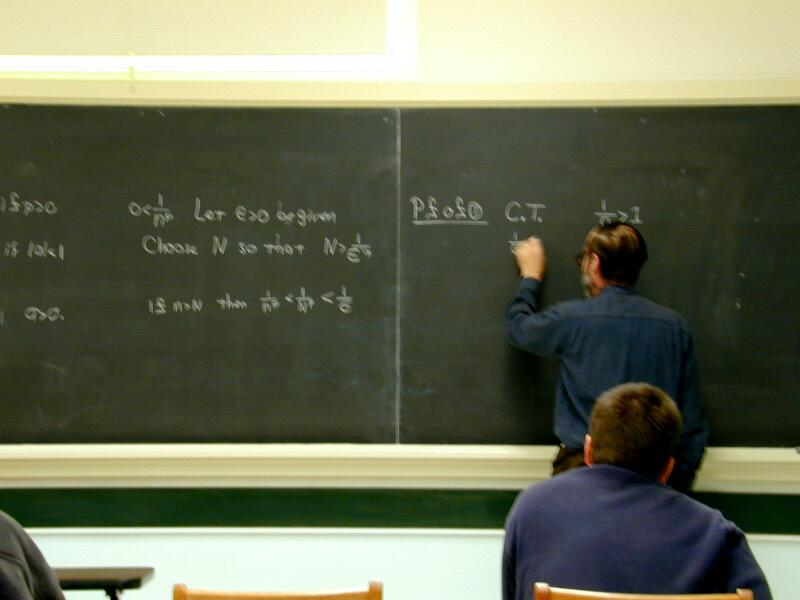 if p>0
if |a|<1
a>0.
0<1/n^p Let ε>0 be given
Choose N so that N>
If n>N then 1/n^p < 1/N^p < 1/ε
Pf of ① C.T.
>1